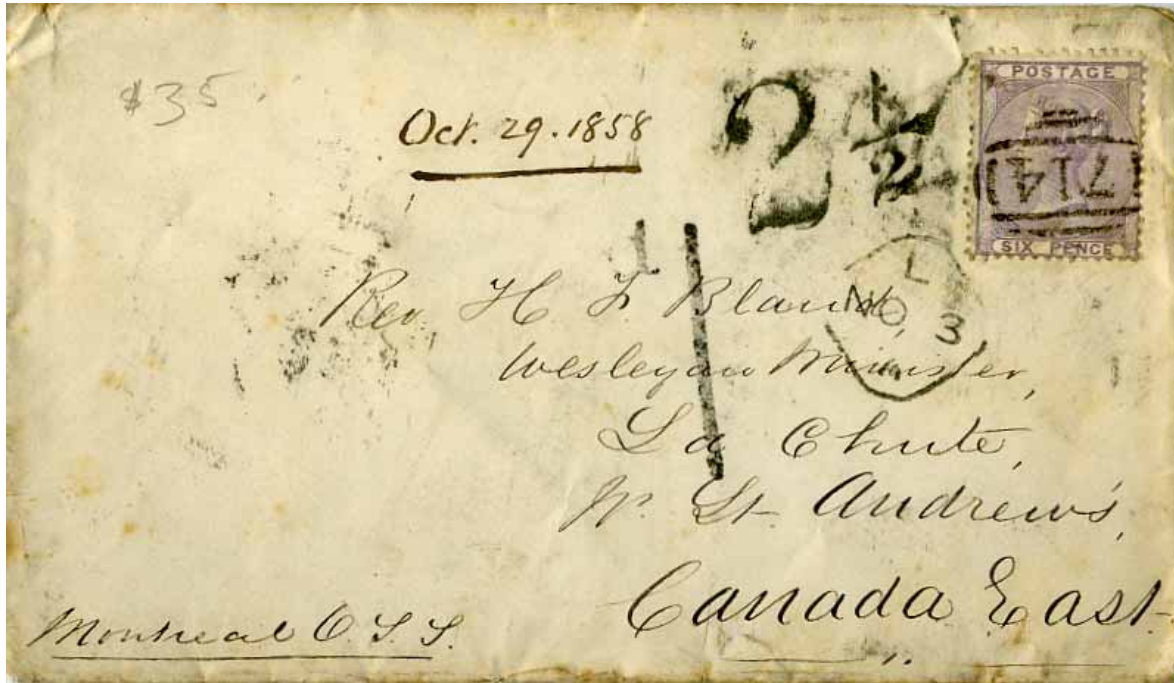 $35
Oct. 29. 1858
2½
POSTAGE
714
SIX PENCE
L
NO 3
1
Rev. H. F. Bland,
Wesleyan Minister,
La Chute,
Nr. St. Andrew's,
Canada East.
Montreal O.S.S.